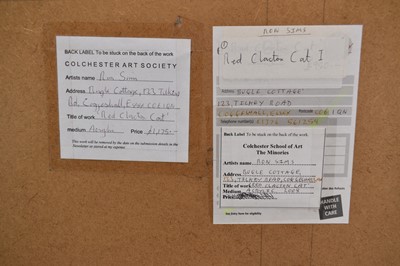 BACK LABEL To be stuck on the back of the work
COLCHESTER ART SOCIETY
Artists name Ron Sims
Address Bugle Cottage, 123 Tilkey
Rd. Coggeshall, Essex CO6 1QN
Title of work 'Red Clacton Cat'
medium Acrylic Price
This work will be removed by the date on the submission details or the
RON SIMS
①
Red Clacton Cat I
BUGLE COTTAGE
123, TILKEY ROAD
COGGESHALL, ESSEX
Back Label To be stuck on the back of the work.
Colchester School of Art
The Minories
Artists name: RON SIMS
Address
BUGLE COTTAGE,
123, TILKEY ROAD, COGGESHALL
Title of work RED CLACTON CAT
Medium ACRYLIC 2009
Price
See Entry form for eligibility
HANDLE
WITH
CARE